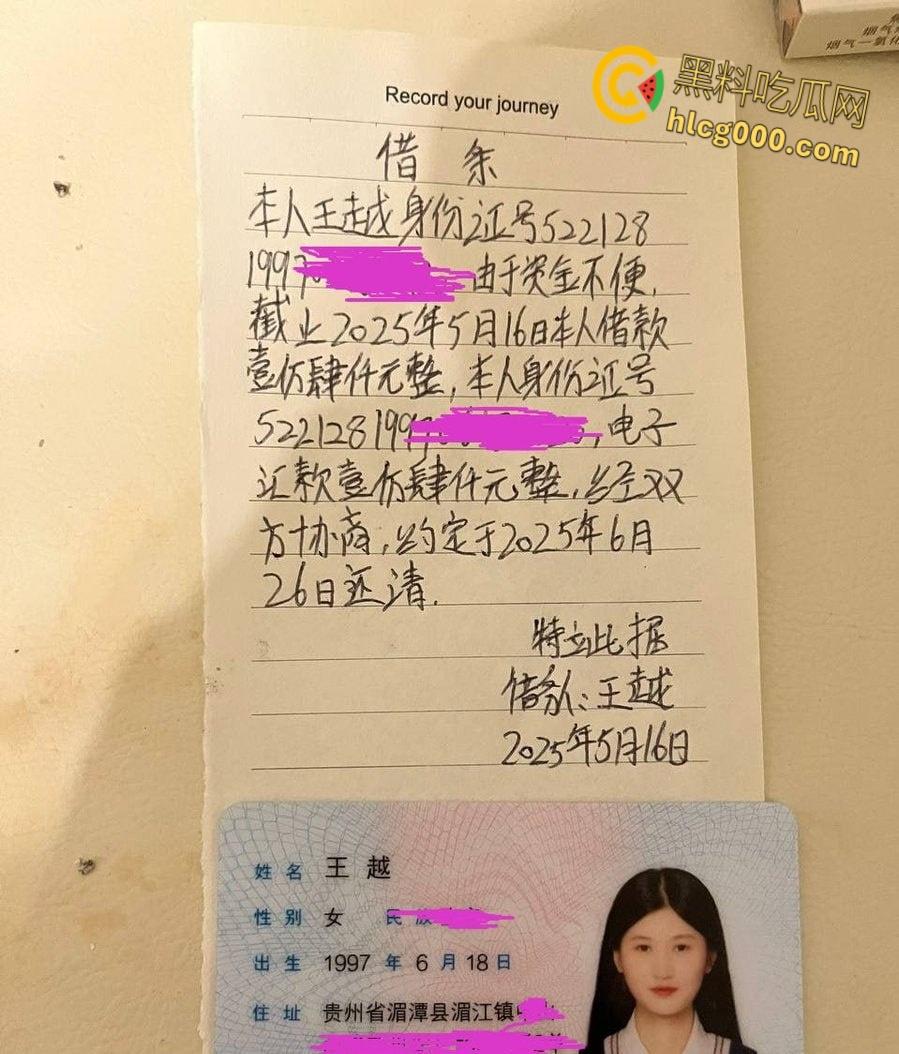 烟气
烟气一氧化
黑料吃瓜网
hlcg000.com
Record your journey
借条
本人王越身份证号522128
199 由于资金不便,
截止2025年5月16日本人借款
壹仟肆仟元整,本人身份证号
522128199 ,电子
汇款壹仟肆仟元整,经双
方协商,约定于2025年6月
26日还清.
特立此据
借款人:王越
2025年5月16日
姓名 王越
性别 女 民族
出生 1997年6月18日
住址 贵州省湄潭县湄江镇